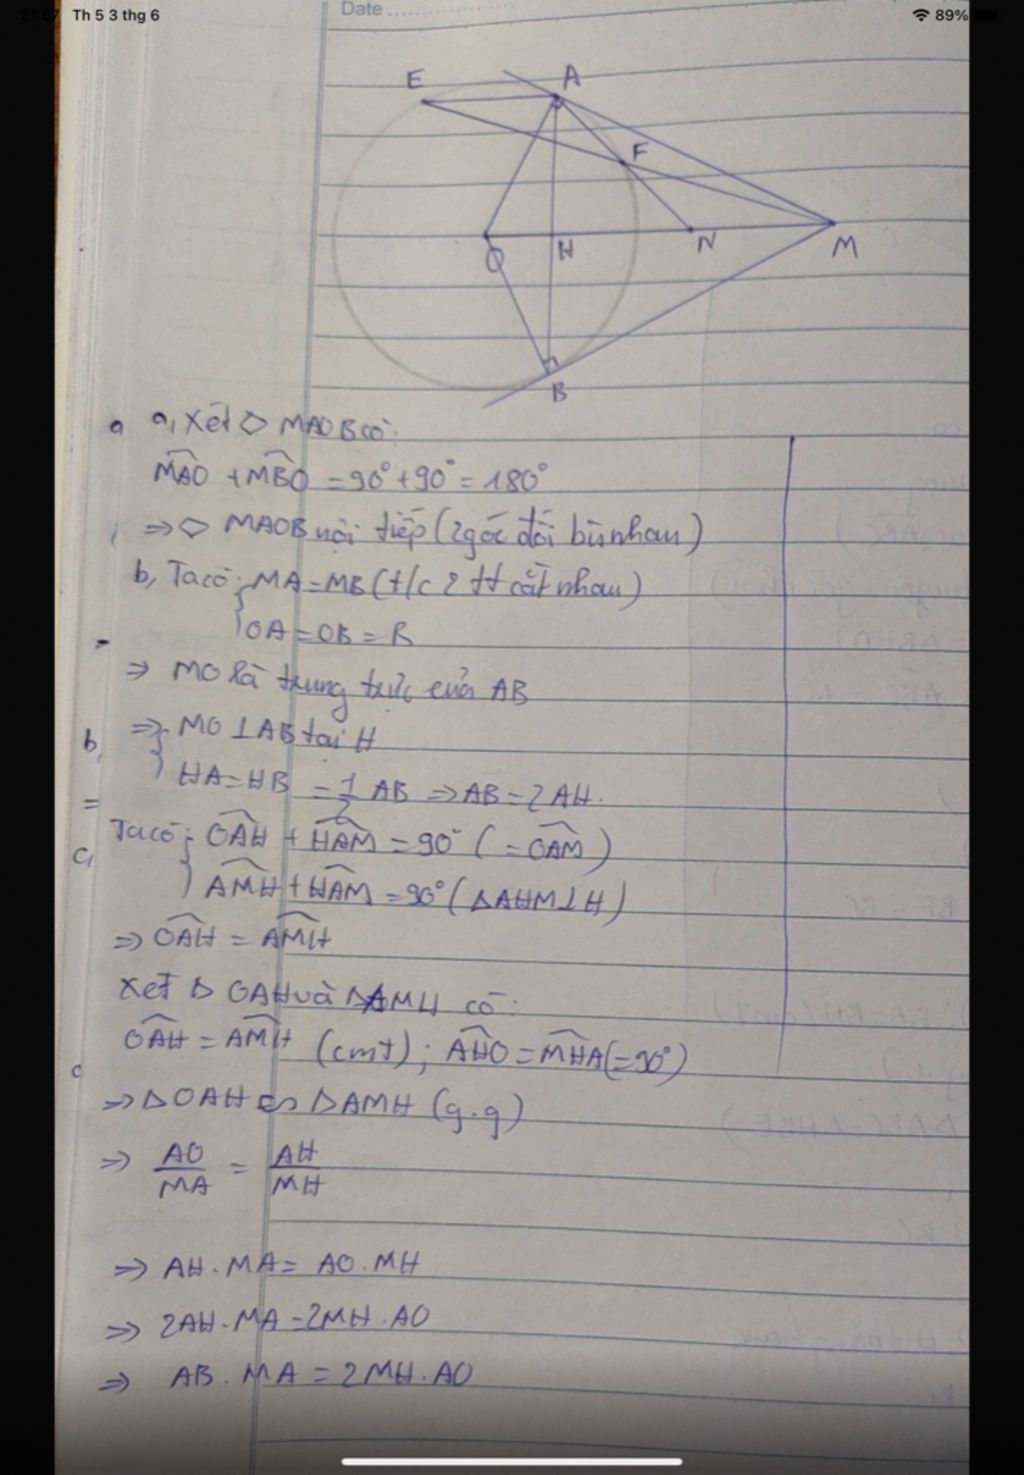 21:07 Th 5 3 thg 6
89%
Date
E
A
F
O
H
N
M
B
a, Xét ◇ MAOB có:
MAO + MBO = 90° + 90° = 180°
⇒ ◇ MAOB nội tiếp (2 góc đối bù nhau)
b, Ta có: MA = MB (t/c 2 tt cắt nhau)
OA = OB = R
⇒ MO là trung trực của AB
⇒ MO ⊥ AB tại H
HA = HB = 1/2 AB ⇒ AB = 2AH.
Ta có: OAH + HAM = 90° (= OAM)
AMH + HAM = 90° (ΔAHM ⊥ H)
⇒ OAH = AMH
Xét Δ OAH và ΔAMH có:
OAH = AMH (cmt); AHO = MHA (= 90°)
⇒ ΔOAH ∽ ΔAMH (g.g)
⇒ AO/MA = AH/MH
⇒ AH . MA = AO . MH
⇒ 2AH . MA = 2MH . AO
⇒ AB . MA = 2MH . AO